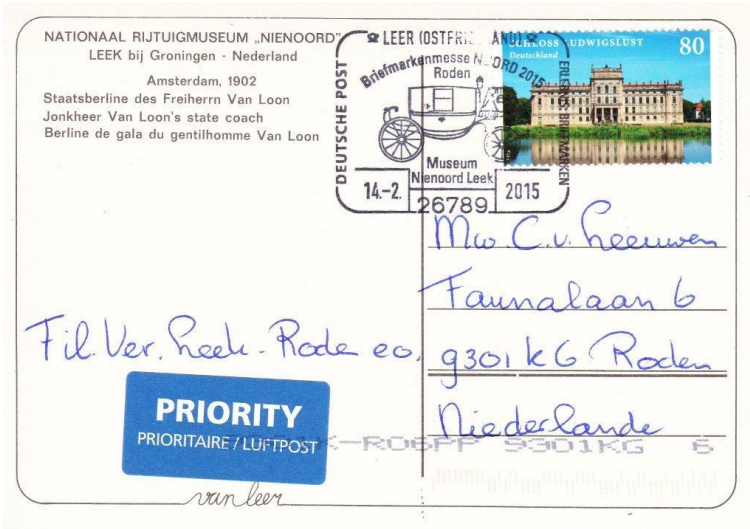 NATIONAAL RIJTUIGMUSEUM „NIENOORD"
LEEK bij Groningen - Nederland
Amsterdam, 1902
Staatsberline des Freiherrn Van Loon
Jonkheer Van Loon's state coach
Berline de gala du gentilhomme Van Loon
LEER
Briefmarkenmesse NOORD 2015
Roden
DEUTSCHE POST
ERLEBNIS: BRIEFMARKEN
Museum
Nienoord Leek
14.-2. 2015
26789
SCHLOSS LUDWIGSLUST
Deutschland
80
Mw. C. v. Leeuwen
Faunalaan 6
9301 KG Roden
Niederlande
Fil. Ver. Leek-Roden eo.
PRIORITY
PRIORITAIRE / LUFTPOST
9301KG 6
van leer